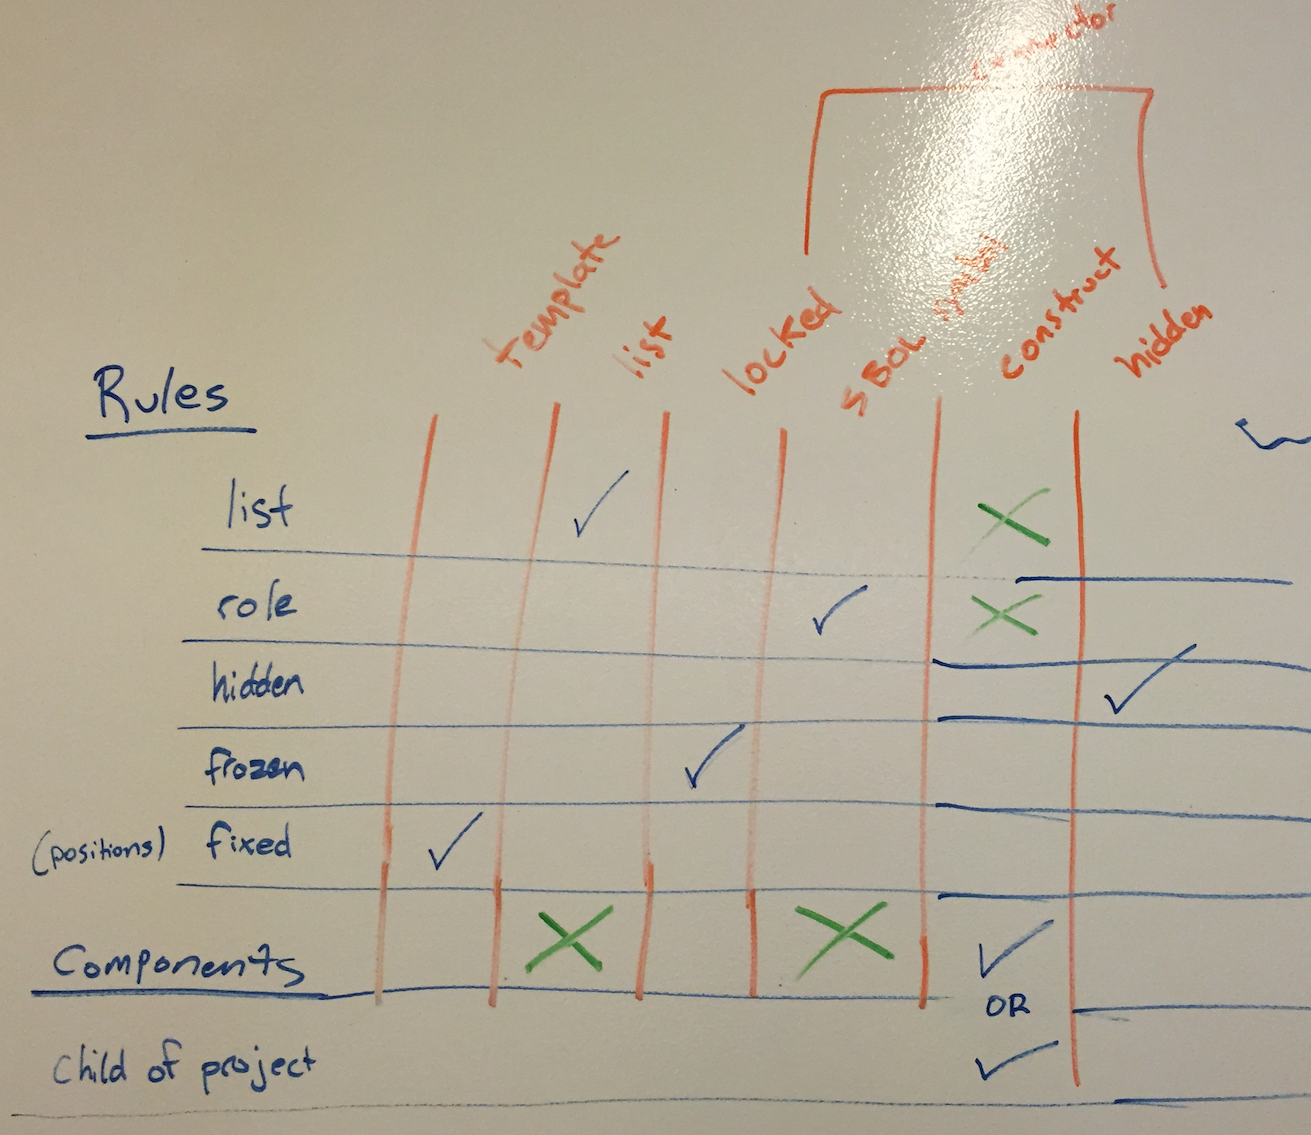 connector
template
list
locked
SBOL
construct
hidden
Rules
list
role
hidden
frozen
(positions) fixed
Components
OR
Child of project